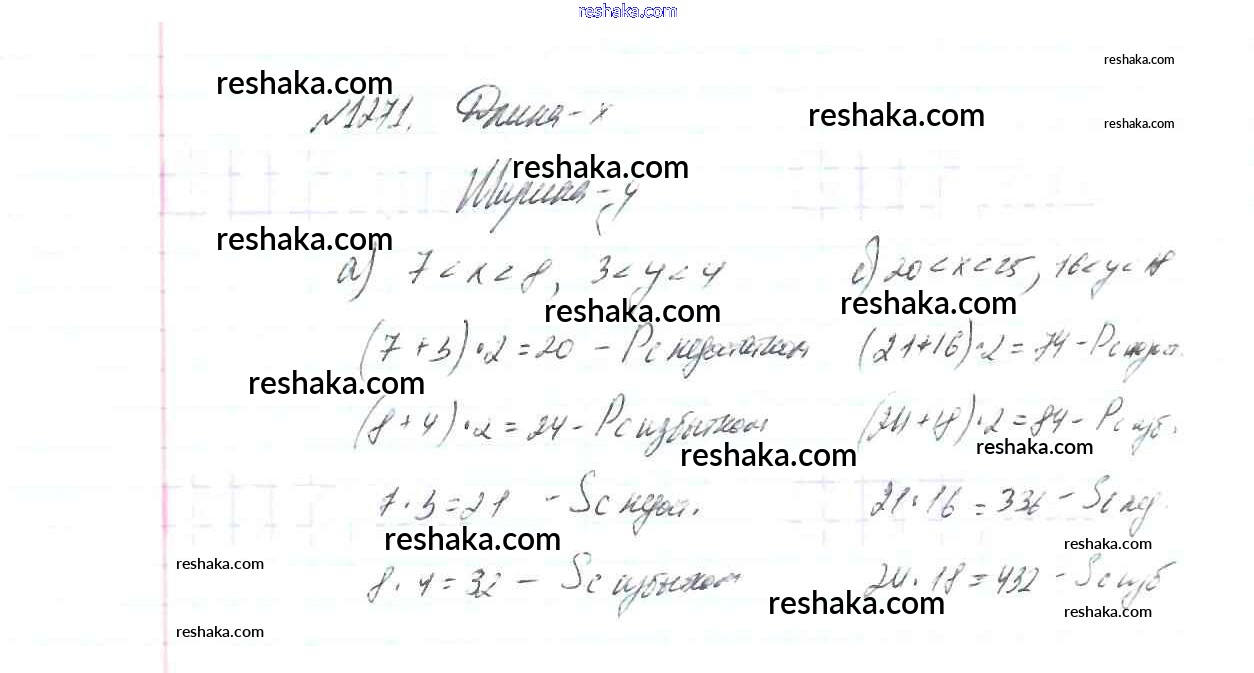 reshaka.com
reshaka.com
reshaka.com
№1271. Длина - x
reshaka.com
reshaka.com
reshaka.com
Ширина - y
reshaka.com
а) 7 < x < 8, 3 < y < 4
б) 20 < x < 25, 16 < y < 18
reshaka.com
reshaka.com
(7 + 3) · 2 = 20 - P с недостатком
(21 + 16) · 2 = 74 - P с
reshaka.com
(8 + 4) · 2 = 24 - P с избытком
(24 + 18) · 2 = 84 - P с изб.
reshaka.com
reshaka.com
7 · 3 = 21 - S с недост.
21 · 16 = 336 - S с нед.
reshaka.com
reshaka.com
reshaka.com
8 · 4 = 32 - S с избытком
24 · 18 = 432 - S с изб
reshaka.com
reshaka.com
reshaka.com